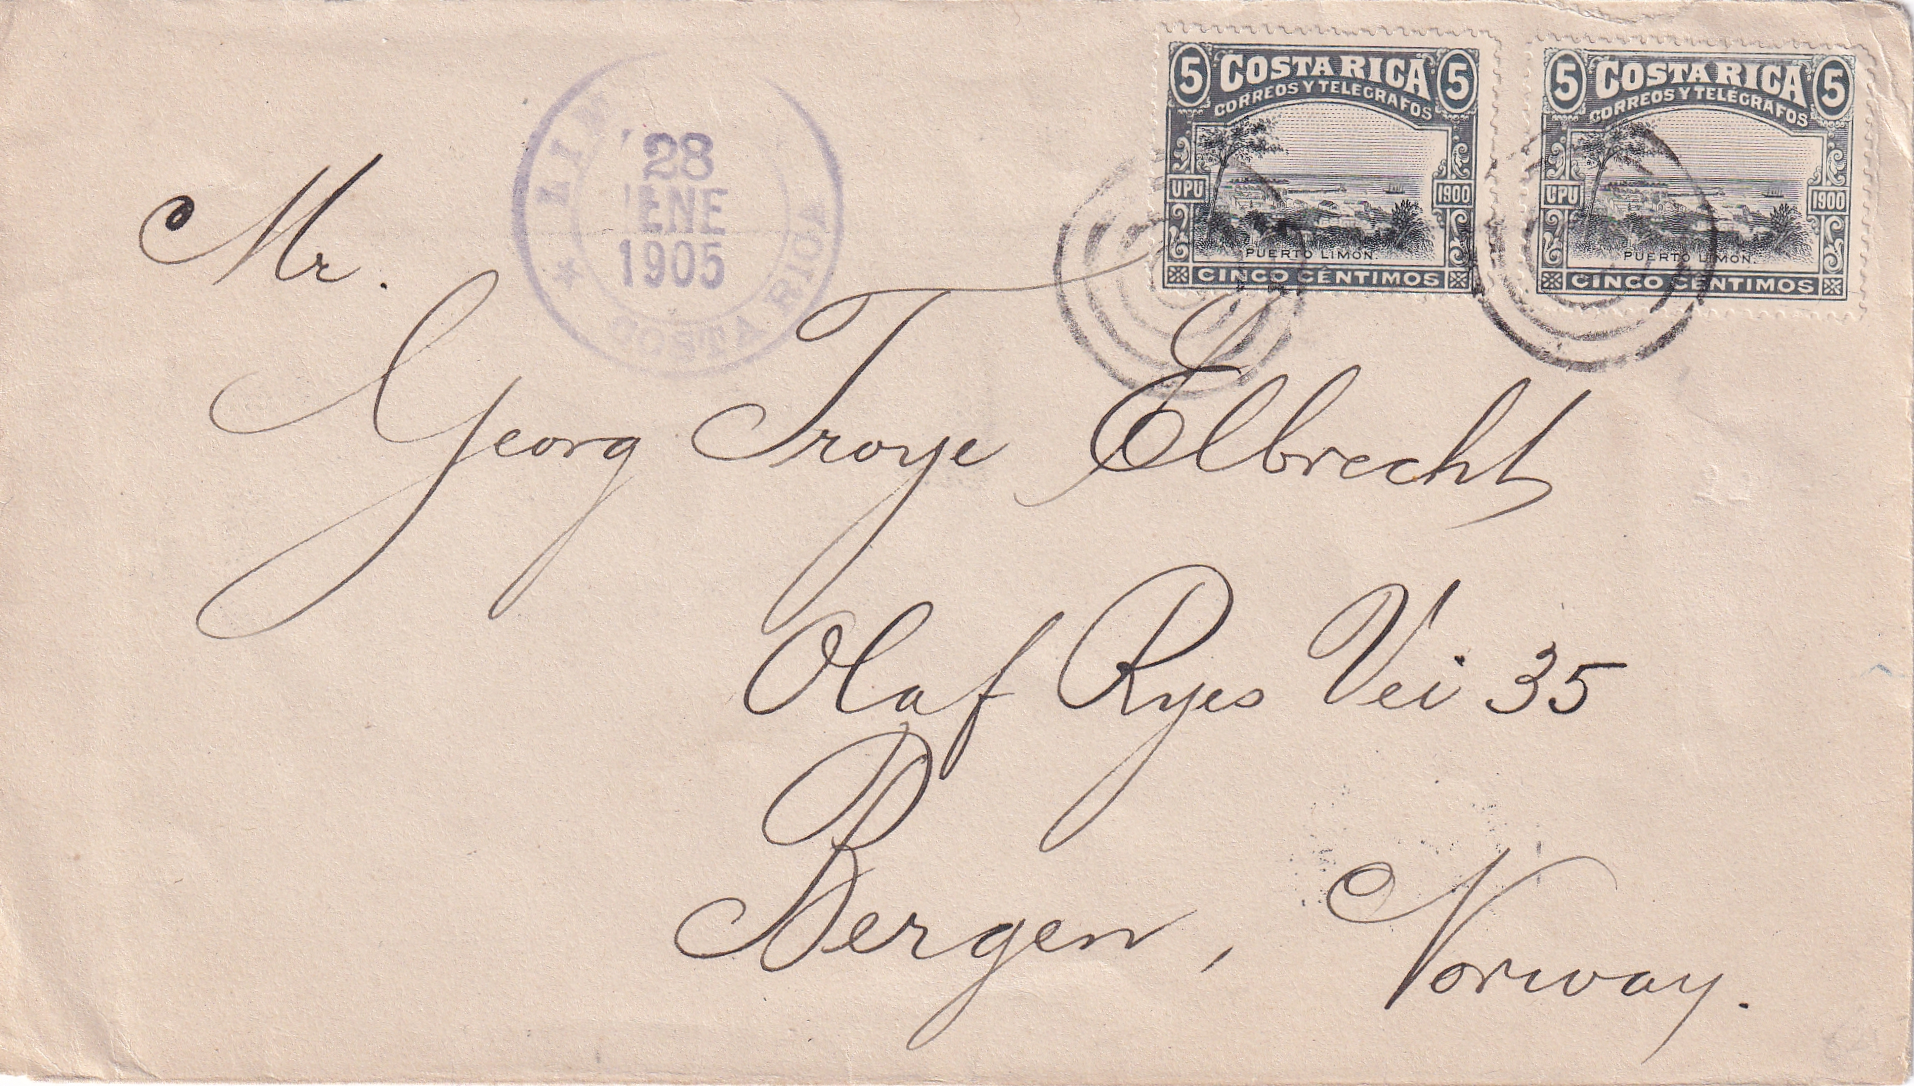 5 COSTA RICA 5
CORREOS Y TELEGRAFOS
UPU 1900
PUERTO LIMON.
CINCO CENTIMOS
5 COSTA RICA 5
CORREOS Y TELEGRAFOS
UPU 1900
PUERTO LIMON.
CINCO CENTIMOS
28
ENE
1905
COSTA RICA
Mr.
Georg Troye Elbrecht
Olaf Ryes Vei 35
Bergen, Norway.